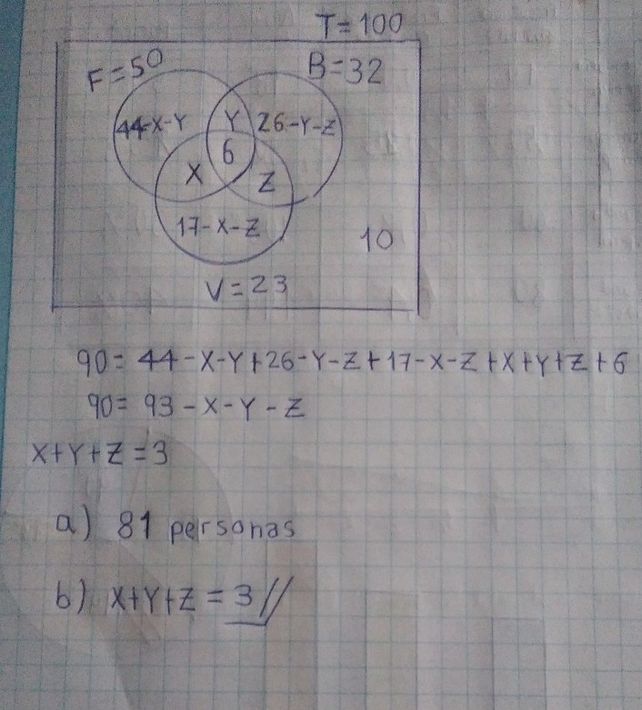 T=100
F=50
B=32
44-X-Y
Y
26-Y-Z
6
X
Z
17-X-Z
10
V=23
90= 44-X-Y+26-Y-Z+17-X-Z+X+Y+Z+6
90= 93-X-Y-Z
X+Y+Z=3
a) 81 personas
b) X+Y+Z=3//